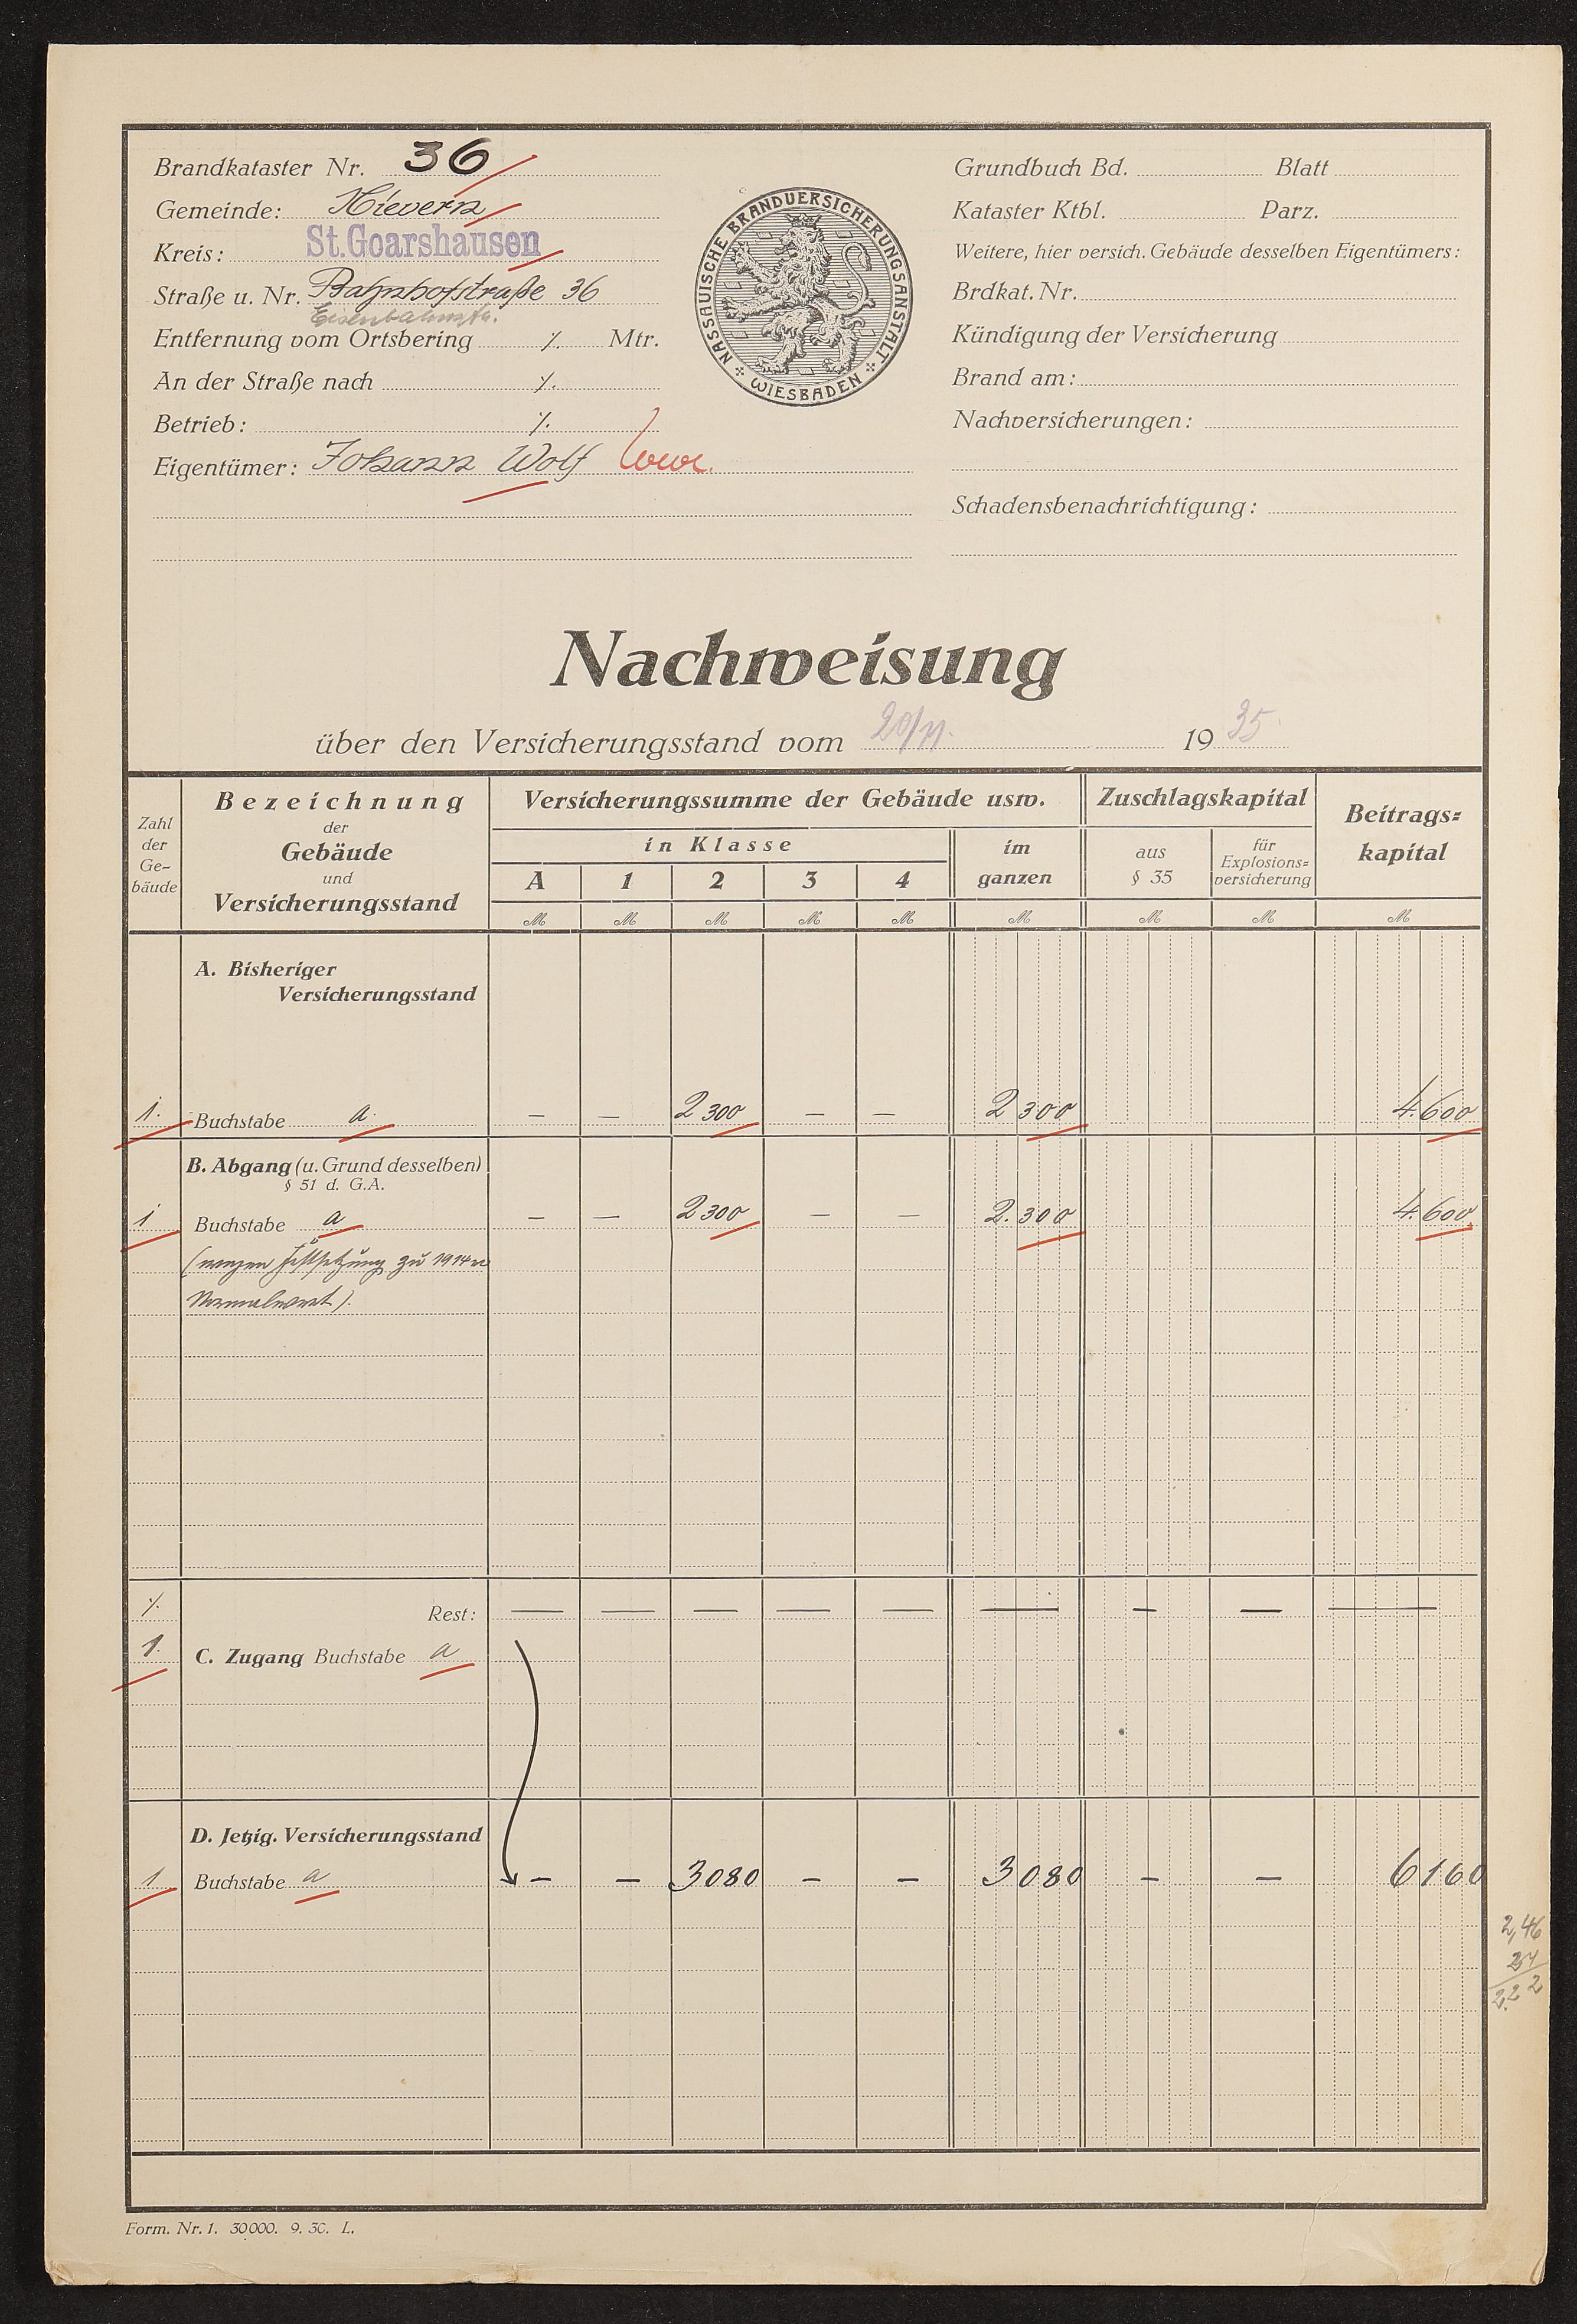 Brandkataster Nr. 36
Gemeinde: Nievern
Kreis: St. Goarshausen
Straße u. Nr. Bahnhofstraße 36
Eisenbahnstr.
Entfernung vom Ortsbering ⁒ Mtr.
An der Straße nach ⁒
Betrieb: ⁒
Eigentümer: Johann Wolf Wwe.
NASSAUISCHE BRANDVERSICHERUNGSANSTALT
WIESBADEN
Grundbuch Bd. Blatt
Kataster Ktbl. Parz.
Weitere, hier versich. Gebäude desselben Eigentümers:
Brdkat. Nr.
Kündigung der Versicherung
Brand am:
Nachversicherungen:
Schadensbenachrichtigung:
Nachweisung
über den Versicherungsstand vom 20/11. 1935.
Zahl der Ge-bäude
Bezeichnung der Gebäude und Versicherungsstand
Versicherungssumme der Gebäude usw.
in Klasse
A 1 2 3 4
im ganzen
Zuschlagskapital
aus § 35
für Explosions-versicherung
Beitrags-kapital
M M M M M M M M M
A. Bisheriger
Versicherungsstand
1. Buchstabe a – – 2300 – – 2300 4.600
B. Abgang (u. Grund desselben)
§ 51 d. G.A.
1 Buchstabe a – – 2300 – – 2.300 4.600
(wegen Festsetzung zu 1914er
Normalwert).
⁒ Rest: – – – – – – – – –
1. C. Zugang Buchstabe a
D. Jetzig. Versicherungsstand
1 Buchstabe a – – 3080 – – 3080 – – 6160
2,46
24
2.22
Form. Nr. 1. 30000. 9. 30. L.